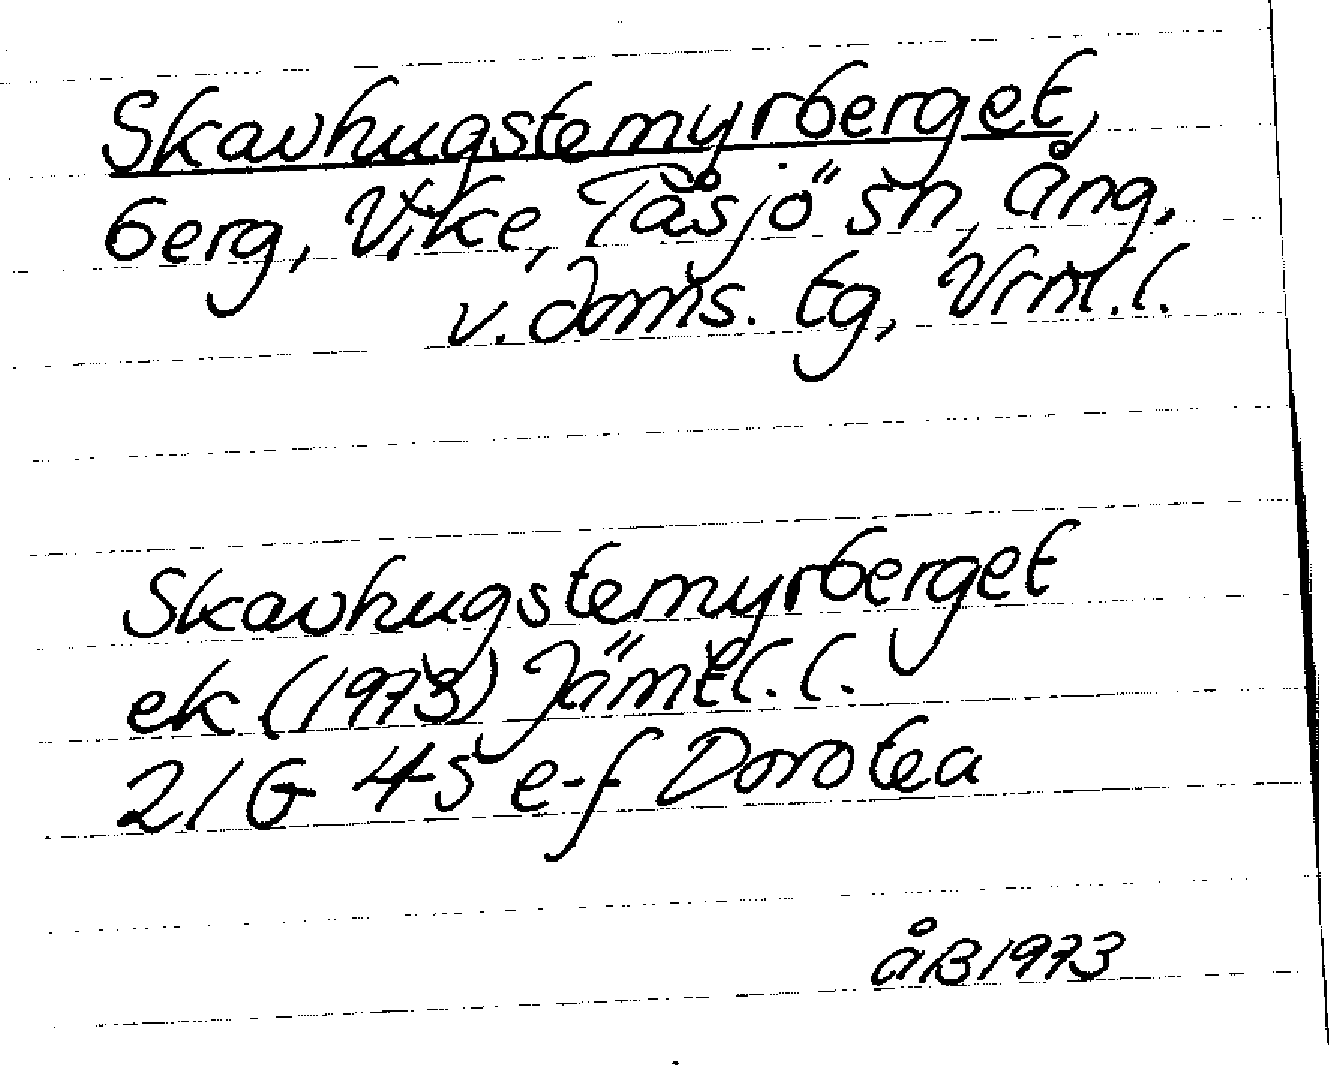 Skavhugstemyrberget,
berg, Vike, Tåsjö sn, Ång.
v. doms. tg, Vrnl. l.
Skavhugstemyrberget
ek (1973) Jämtl. l.
21 G 45 e-f Dorotea
åB 1973